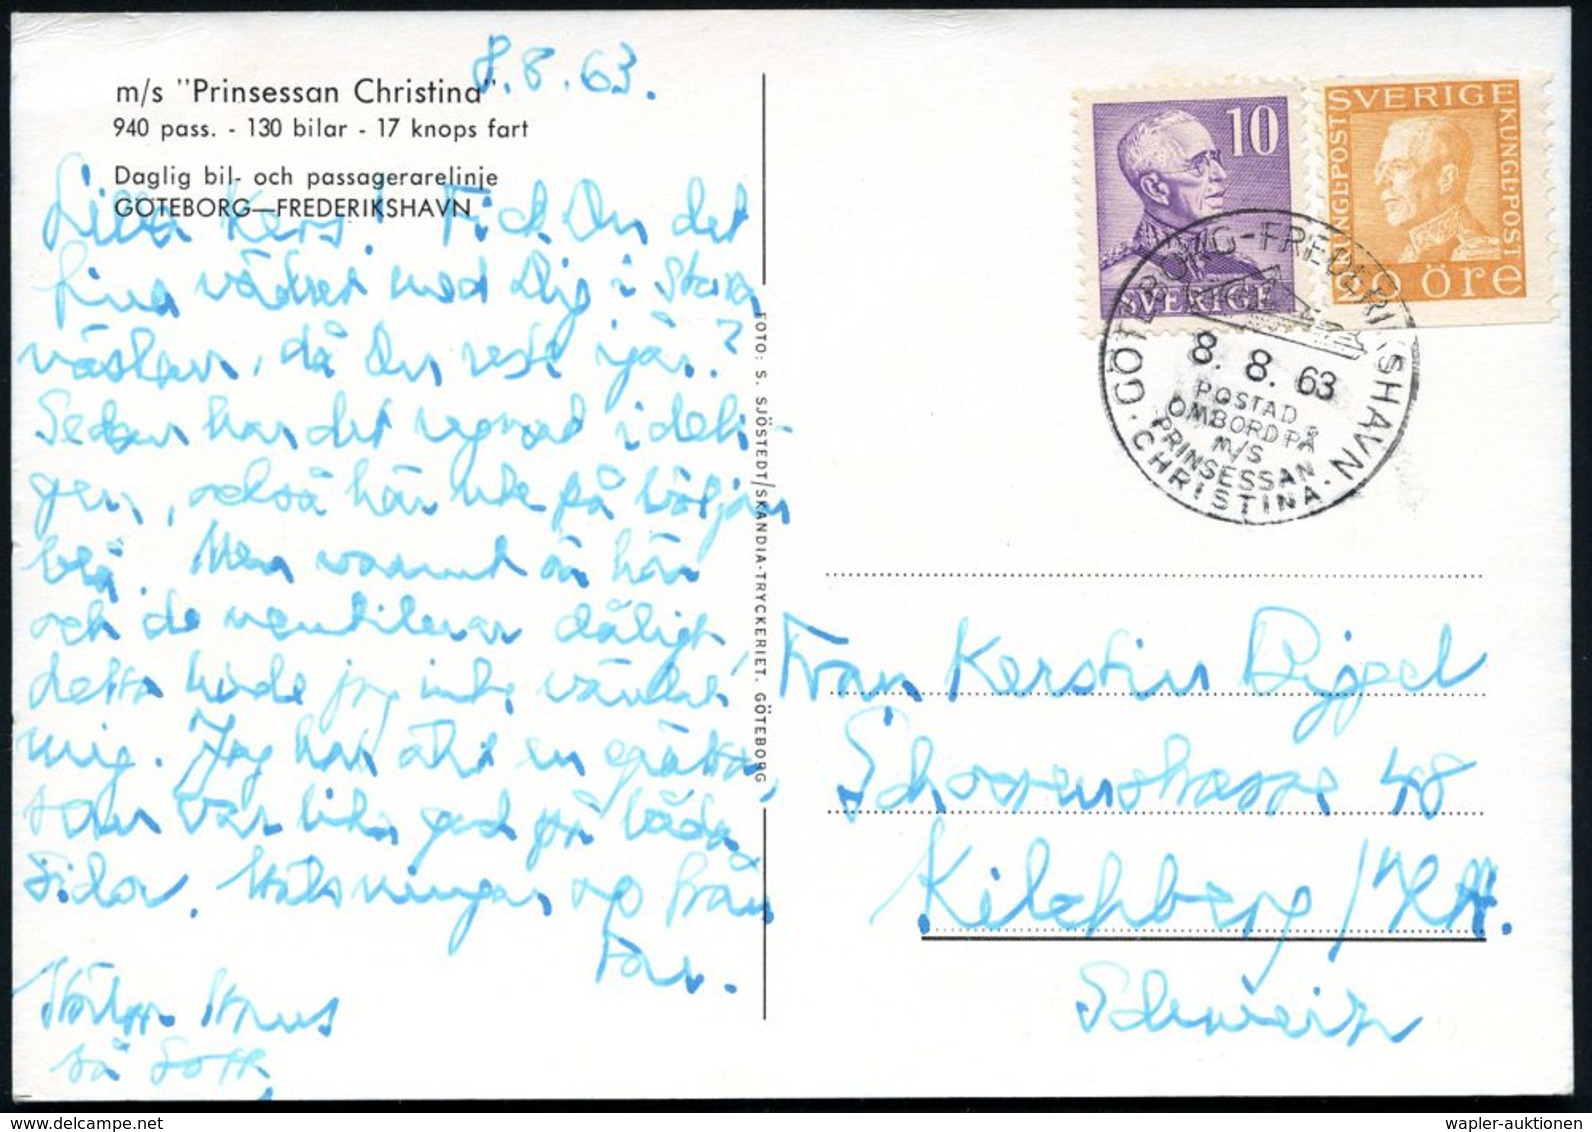 8.8.63.
m/s "Prinsessan Christina"
940 pass. - 130 bilar - 17 knops fart
Daglig bil- och passagerarelinje
GÖTEBORG—FREDERIKSHAVN
Lilla Kers! Fick Du det
fina vädret med Dig i
då Du reste igår?
Sedan har det regnat
gen, också här ute på
blå. Men varmt är här
och de ventilerar dåligt,
detta hade jag inte väntat
mig. Jag har ätit en
som var lika god på båda
sidor. Hälsningar från
Far.
Hans
så gott
FOTO: S. SJÖSTEDT/SKANDIA-TRYCKERIET. GÖTEBORG
10
SVERIGE
SVERIGE
KUNGL·POST
KUNGL·POST
öre
GÖTEBORG-FREDERIKSHAVN
8. 8. 63
POSTAD
OMBORD PÅ
M/S
PRINSESSAN
CHRISTINA
Kerstin
48
Kilchberg / ZH.
Schweiz
wapler-auktionen